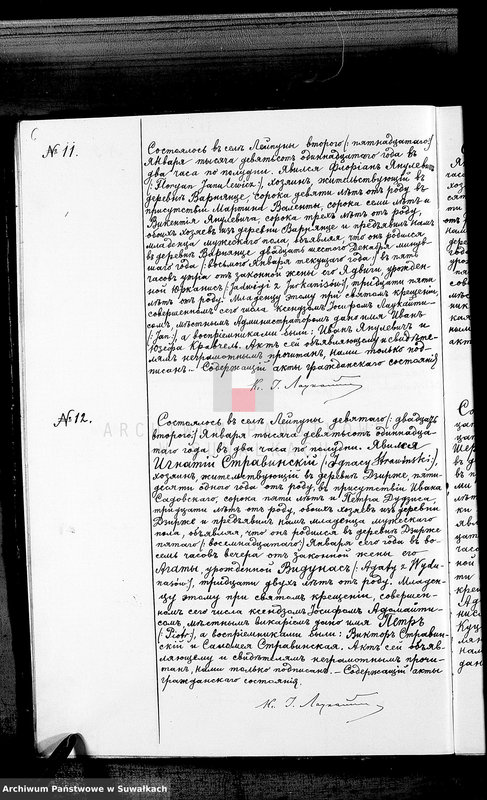 № 11.
Состоялось въ селѣ Лейпуны второго (: пятнадцатаго:)
Января тысяча девятьсотъ одиннадцатаго года въ
два часа по полудни. Явился Флоріанъ Янулевичъ
(: Floryan Janulewicz:), хозяинъ, жительствующій въ
деревнѣ Варнянце, сорока девяти лѣтъ отъ роду, въ
присутствіи Мартина Валенты, сорока семи лѣтъ и
Викентія Янулевича, сорока трехъ лѣтъ отъ роду,
обоихъ хозяевъ изъ деревни Варнянце и предъявилъ намъ
младенца мужескаго пола, объявляя, что онъ родился
въ деревнѣ Варнянце двадцать шестого Декабря минув-
шаго года (: восьмого Января текущаго года:) въ пять
часовъ утра отъ законной жены его Ядвиги урожден-
ной Юрканисъ (: Jadwigi z Jurkanisów:), тридцати пяти
лѣтъ отъ роду. Младенцу этому при святомъ крещеніи,
совершенномъ сего числа Ксендзомъ Іосифомъ Лаукайти-
сомъ мѣстнымъ Администраторомъ дано имя Иванъ
(: Jan:), а воспріемниками были: Янулевичъ и
Юзефа Акт сей объявляющему и свидѣте-
лямъ неграмотнымъ прочитанъ, нами только под-
писанъ. — Содержащій акты гражданскаго состоянія
К. І. Лаукайтис
№ 12.
Состоялось въ селѣ Лейпуны девятаго (: двадцать
второго:) Января тысяча девятьсотъ одиннадца-
таго года въ два часа по полудни. Явился
Игнатій Стравинскій (: Ignacy Strawinski:),
хозяинъ, жительствующій въ деревнѣ Дзирже, пяти-
десяти одного года отъ роду, въ присутствіи Ивана
Садовскаго, сорока пяти лѣтъ и Петра Дудзиса
тридцати лѣтъ отъ роду, обоихъ хозяевъ изъ деревни
Дзирже и предъявилъ намъ младенца мужескаго
пола, объявляя, что онъ родился въ деревнѣ Дзирже
пятаго (: восемнадцатаго:) Января сего года въ во-
семь часовъ вечера отъ законной жены его
Агаты урожденной Видунасъ (: Agaty z Wydu-
nasów:), тридцати двухъ лѣтъ отъ роду. Младен-
цу этому при святомъ крещеніи, совершен-
номъ сего числа ксендзомъ Іосифомъ Адомайти-
сомъ, мѣстнымъ викаріемъ дано имя Петръ
(: Piotr:), а воспріемниками были: Викторъ Стравин-
скій и Саломея Стравинская. Актъ сей объяв-
ляющему и свидѣтелямъ неграмотнымъ прочи-
танъ, нами только подписанъ. — Содержащій акты
гражданскаго состоянія.
К. І. Лаукайтис
Archiwum Państwowe w Suwałkach